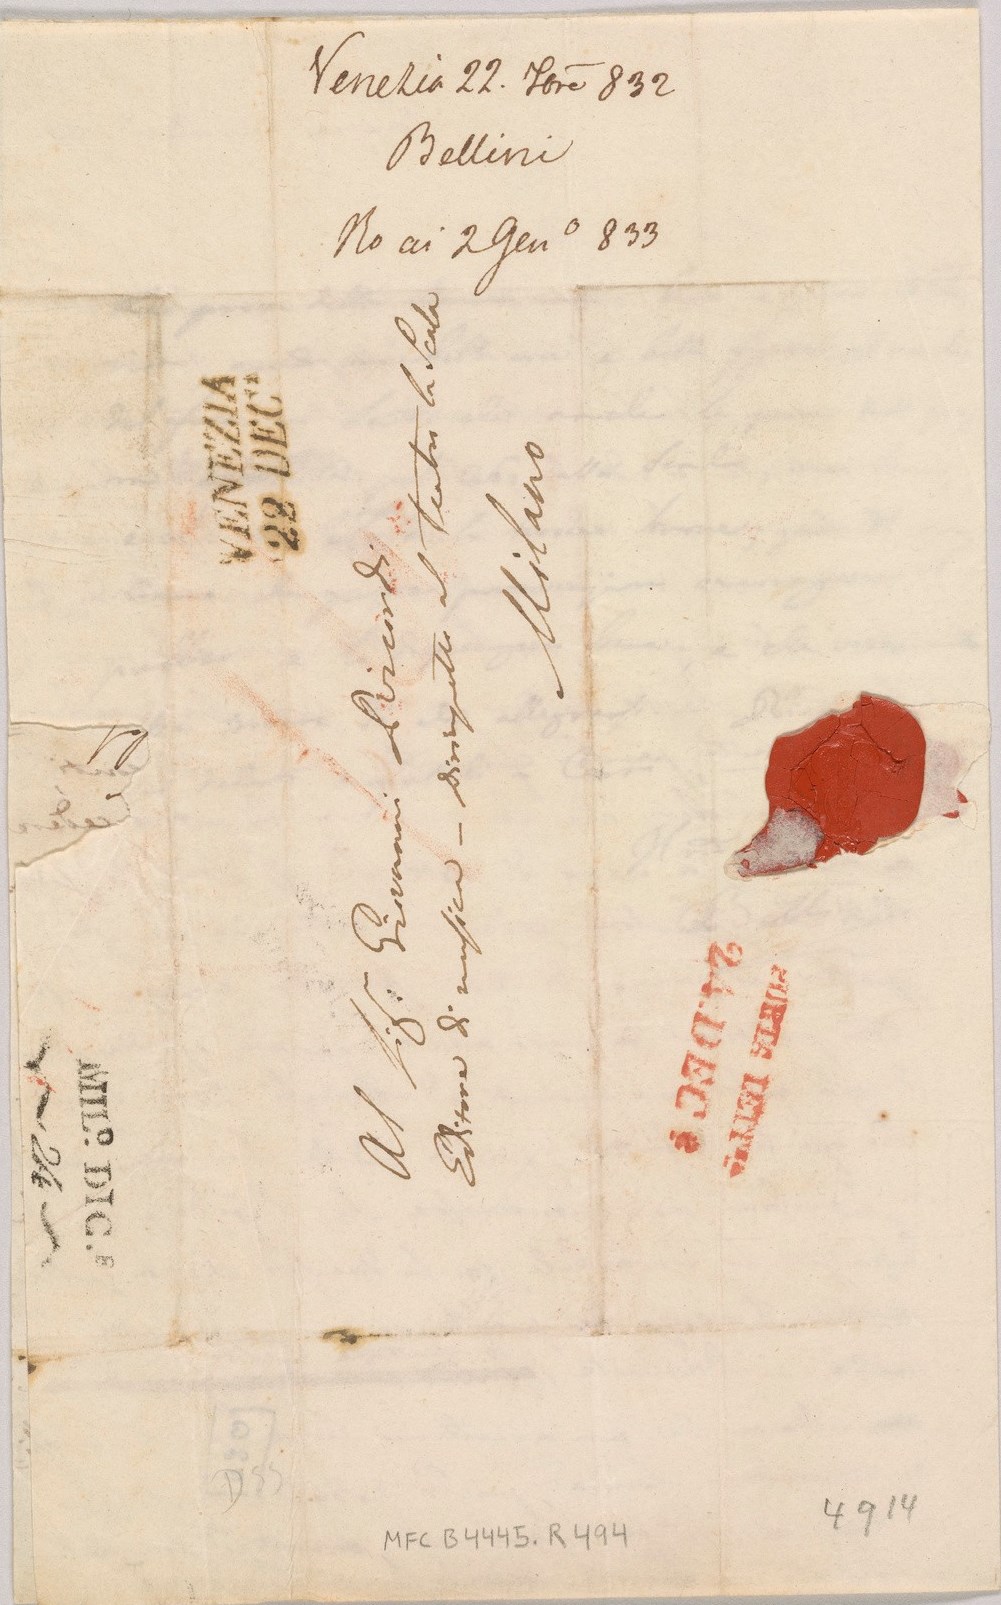 Venezia 22. Xbrē 832
Bellini
Ro ai 2 Genº 833
VENEZIA
22 DECᵉ
Al Sigʳ: Giovanni Ricordi
Editore di musica – dirimpetto al Teatro la Scala
Milano
24. DECᵉ
MILº. DIC.ᵉ
24
MFC B4445. R494
4914